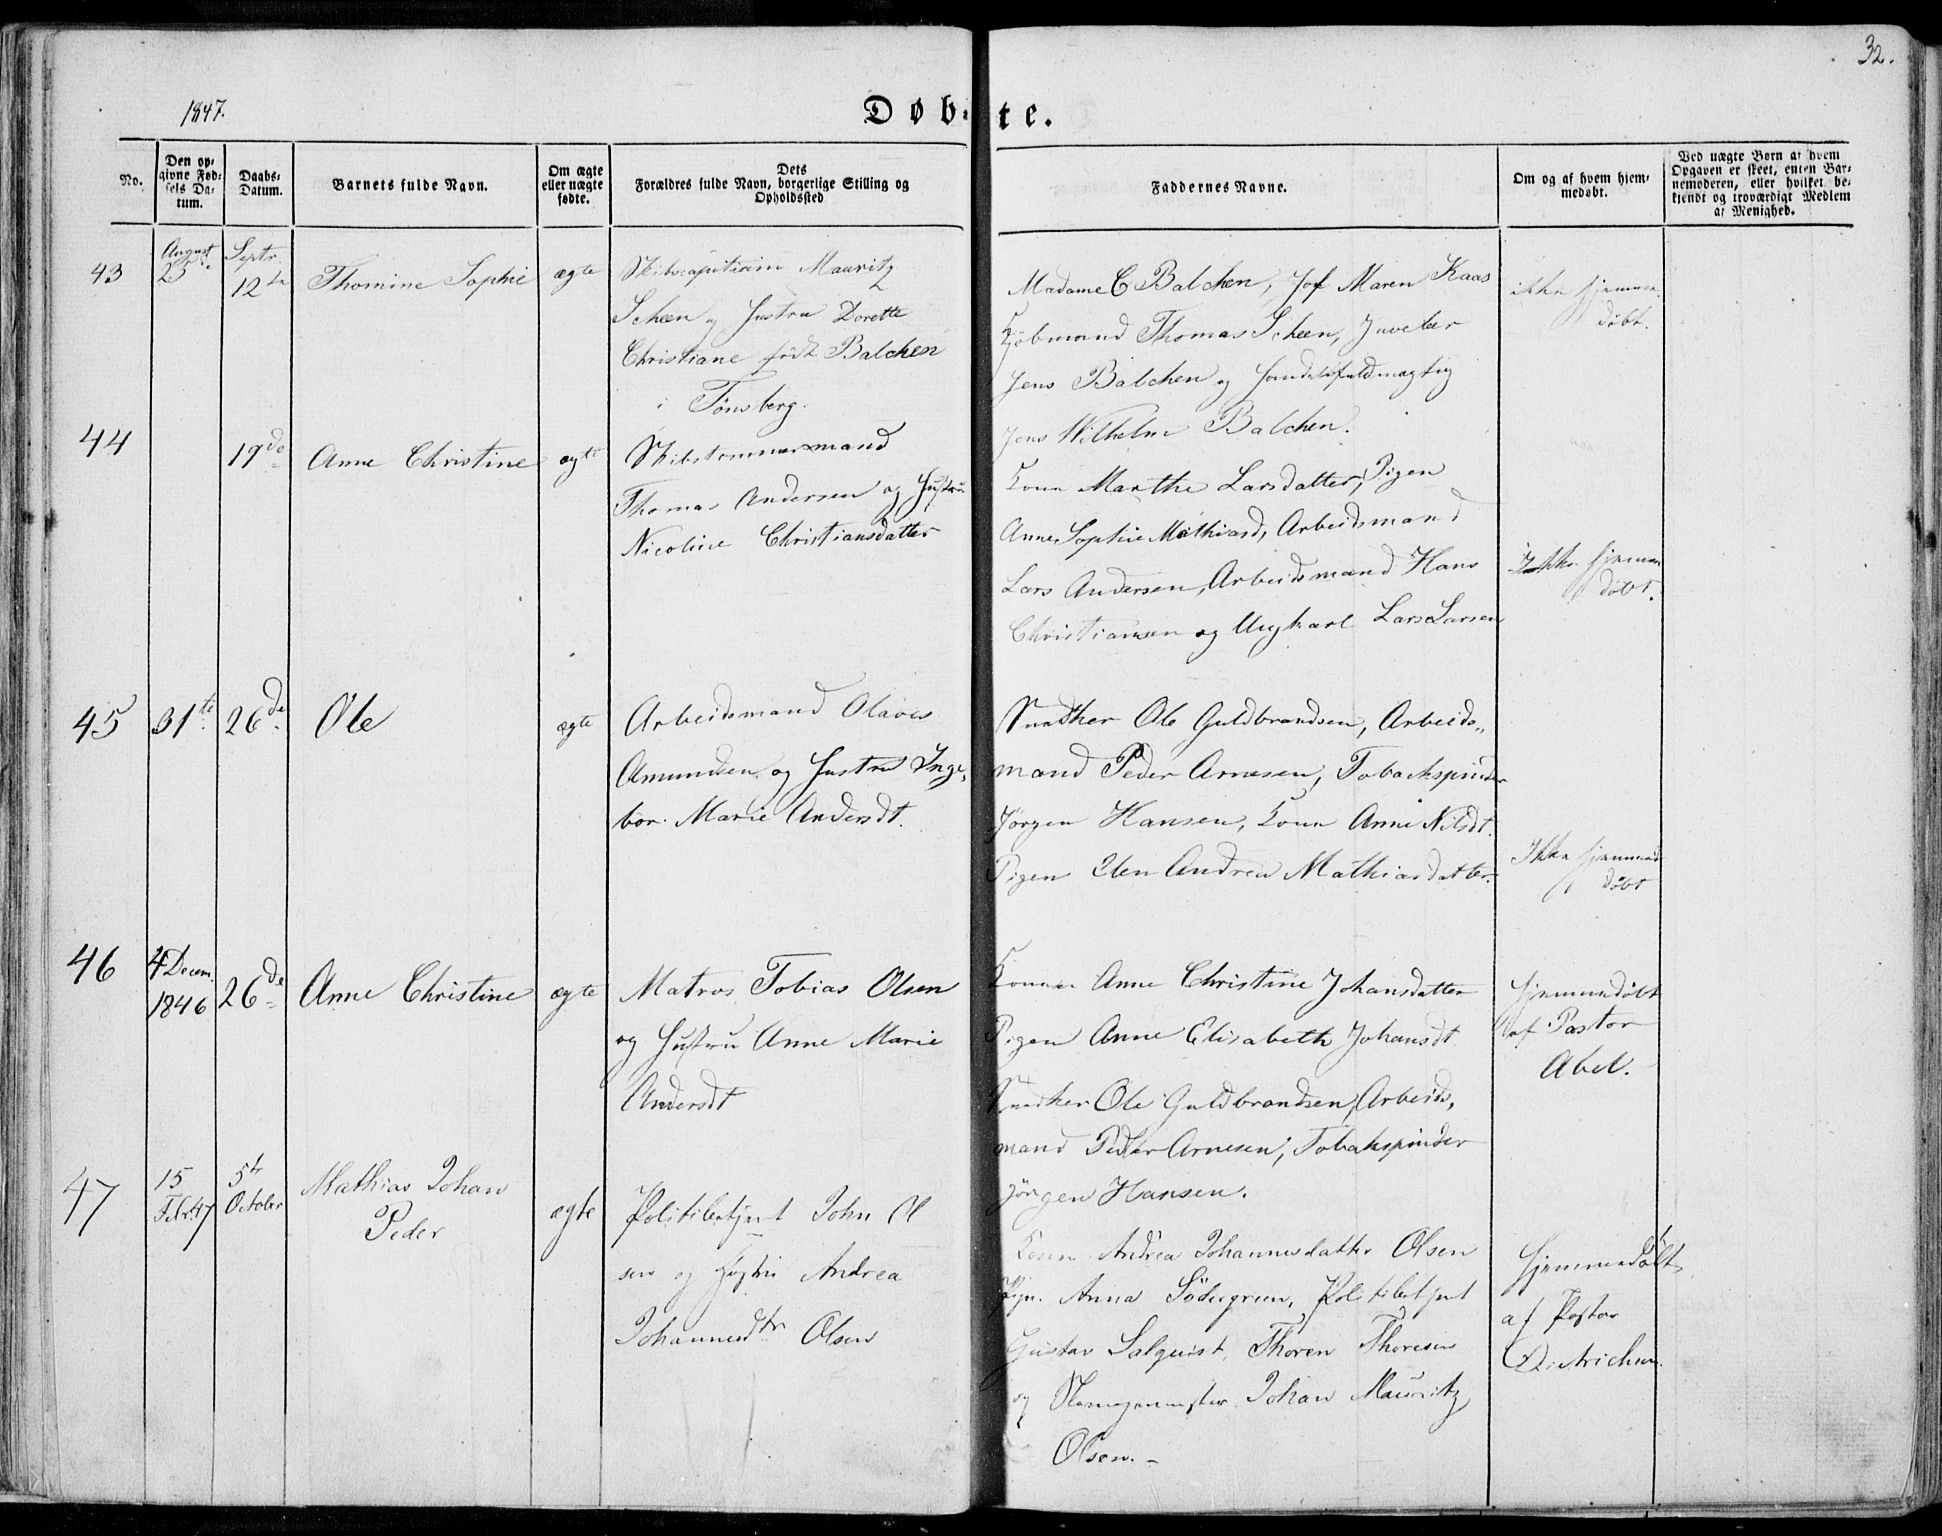 32.
1847.
Døb-te.
No.
Den op-
givne Fød-
sels Da-
tum.
Daabs-
Datum.
Barnets fulde Navn.
Om ægte
eller uægte
fødte.
Dets
Forældres fulde Navn, borgerlige Stilling og
Opholdssted
Faddernes Navne.
Om og af hvem hjem-
medøbt.
Ved uægte Børn af hvem
Opgaven er skeet, enten Bar-
nemoderen, eller hvilket be-
kjendt og troværdigt Medlem
af Menighed.
43
August
25
Septr.
12te
Thomine Sophie
ægte
Skibscapitain Mauritz
Scheen og Hustru Dorette
Christiane født Balchen
i Tønsberg.
Madame C Balchen, Jof Maren Kaas
Kjøbmand Thomas Scheen, Juveler
Jens Balchen og Handelsfuldmægtig
Jens Wilhelm Balchen.
ikke hjemme-
døbt.
44
19de
Anne Christine
ægte
Skibstømmermand
Thomas Andersen og Hustru
Nicoline Christiansdatter
Kone Marthe Larsdatter, Pigen
Anne Sophie Mathiasd, Arbeidsmand
Lars Andersen, Arbeidsmand Hans
Christiansen og Ungkarl Lars Larsen
Ikke hjemme
døbt.
45
31te
26de
Ole
ægte
Arbeidsmand Olaves
Amundsen og Hustru Inge-
bor. Marie Andersdt.
Snedker Ole Guldbrandsen, Arbeids-
mand Peder Arnesen, Tobackspinder
Jørgen Hansen, Kone Anne Nilsdt.
Pigen Elen Andrea Mathiasdatter.
Ikke hjemme
døbt
46
4 Decem.
1846
26de
Anne Christine
ægte
Matros Tobias Olsen
og Hustru Anne Marie
Andersdt
Konen Anne Christine Johansdatter
Pigen Anne Elisabeth Johansdt
Snedker Ole Guldbrandsen, Arbeids-
mand Peder Arnesen, Tobakspinder
Jørgen Hansen.
Hjemmedøbt
af Pastor
Abel.
47
15
Febr. 47
5te
October
Mathias Johan
Peder
ægte
Politibetjent John Ol
sen og Hustru Andrea
Johannesdtr Olsen
Kone Andrea Johannesdatter Olsen
Pige. Anna Södergreen, Politibetjent
Gustav Salquist, Thoren Thoresen
og Johan Mauritz
Olsen.-
Hjemmedøbt
af Pastor
Ditrichsen.